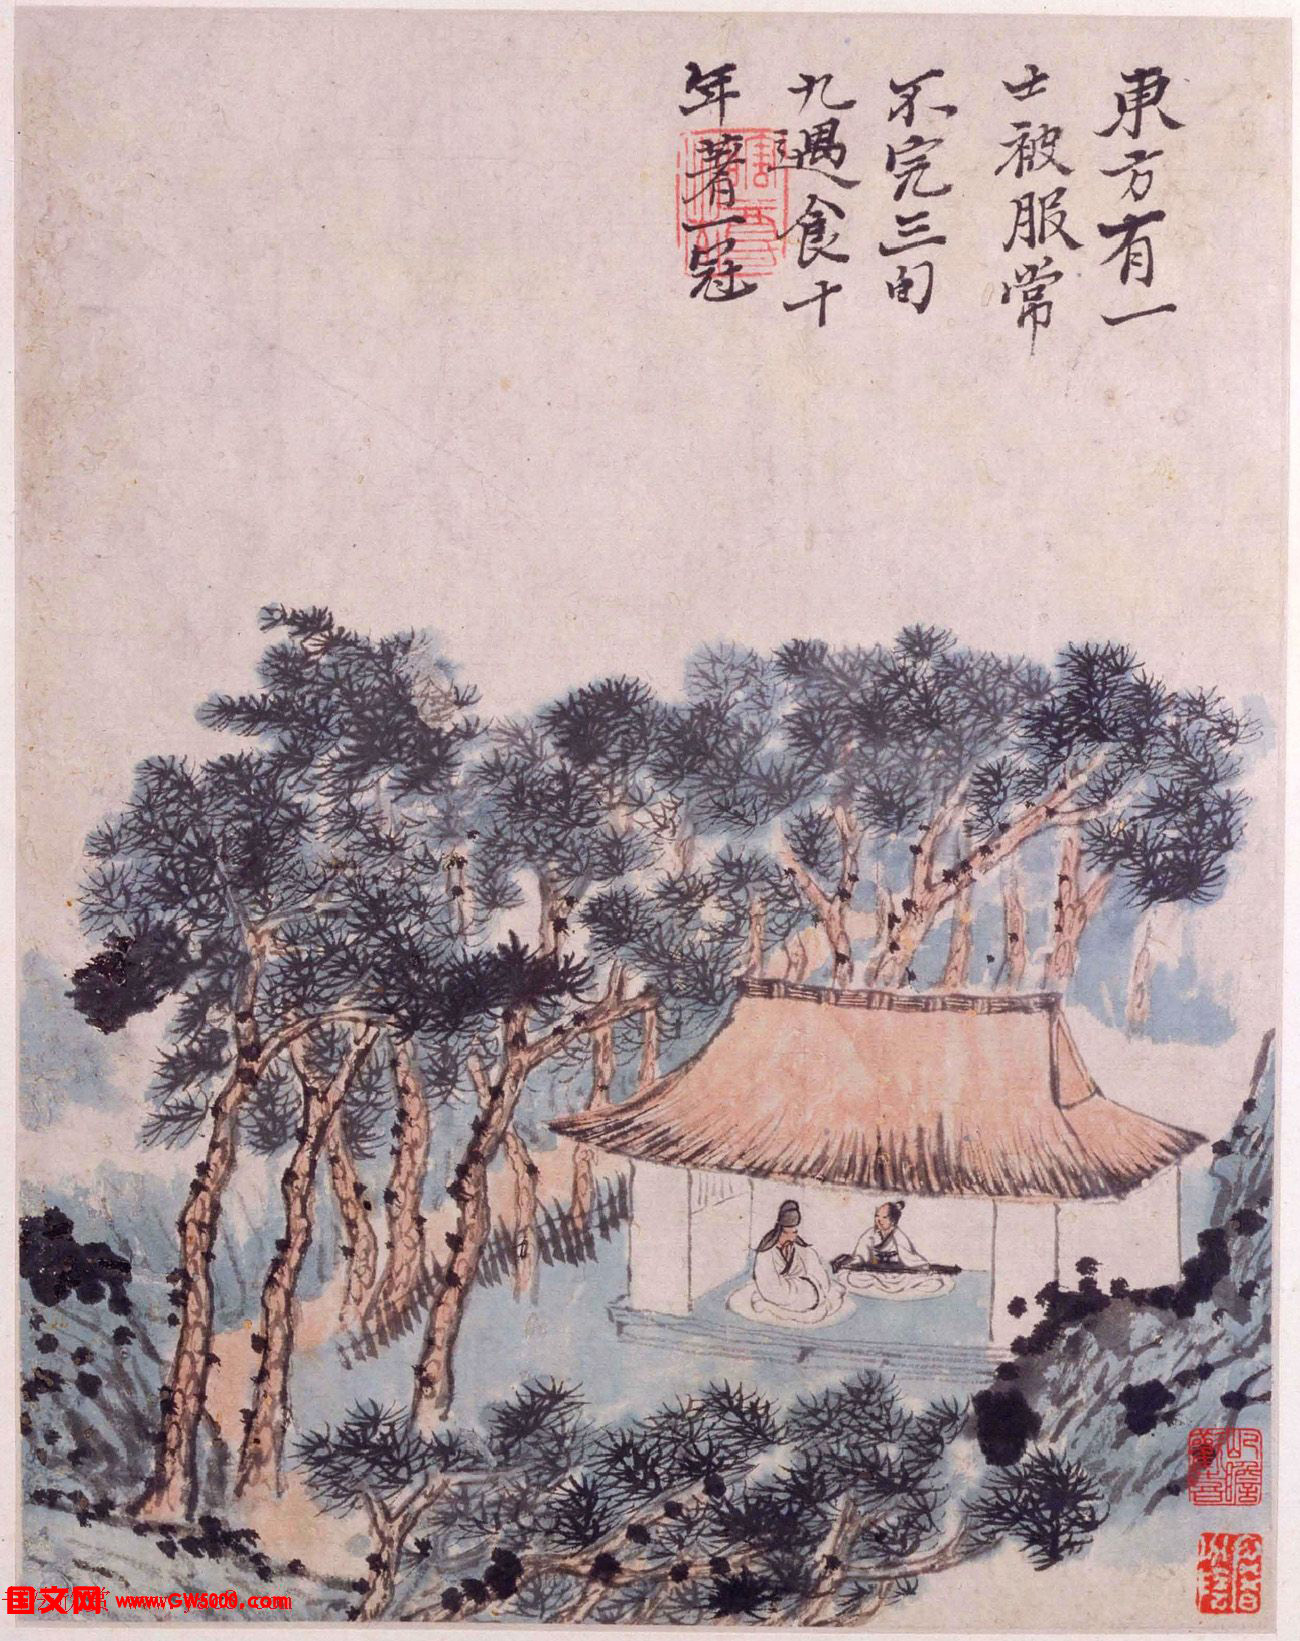 東方有一
士被服常
不完三旬
九遇食十
年著一冠
国文网 www.GW5000.com